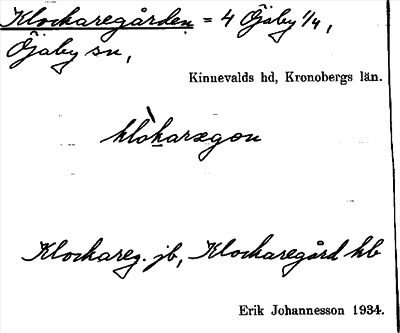 Klockaregården = 4 Öjaby 1/4,
Öjaby sn,
Kinnevalds hd, Kronobergs län.
klòkaragon
Klockareg. jb, Klockaregård hb
Erik Johannesson 1934.